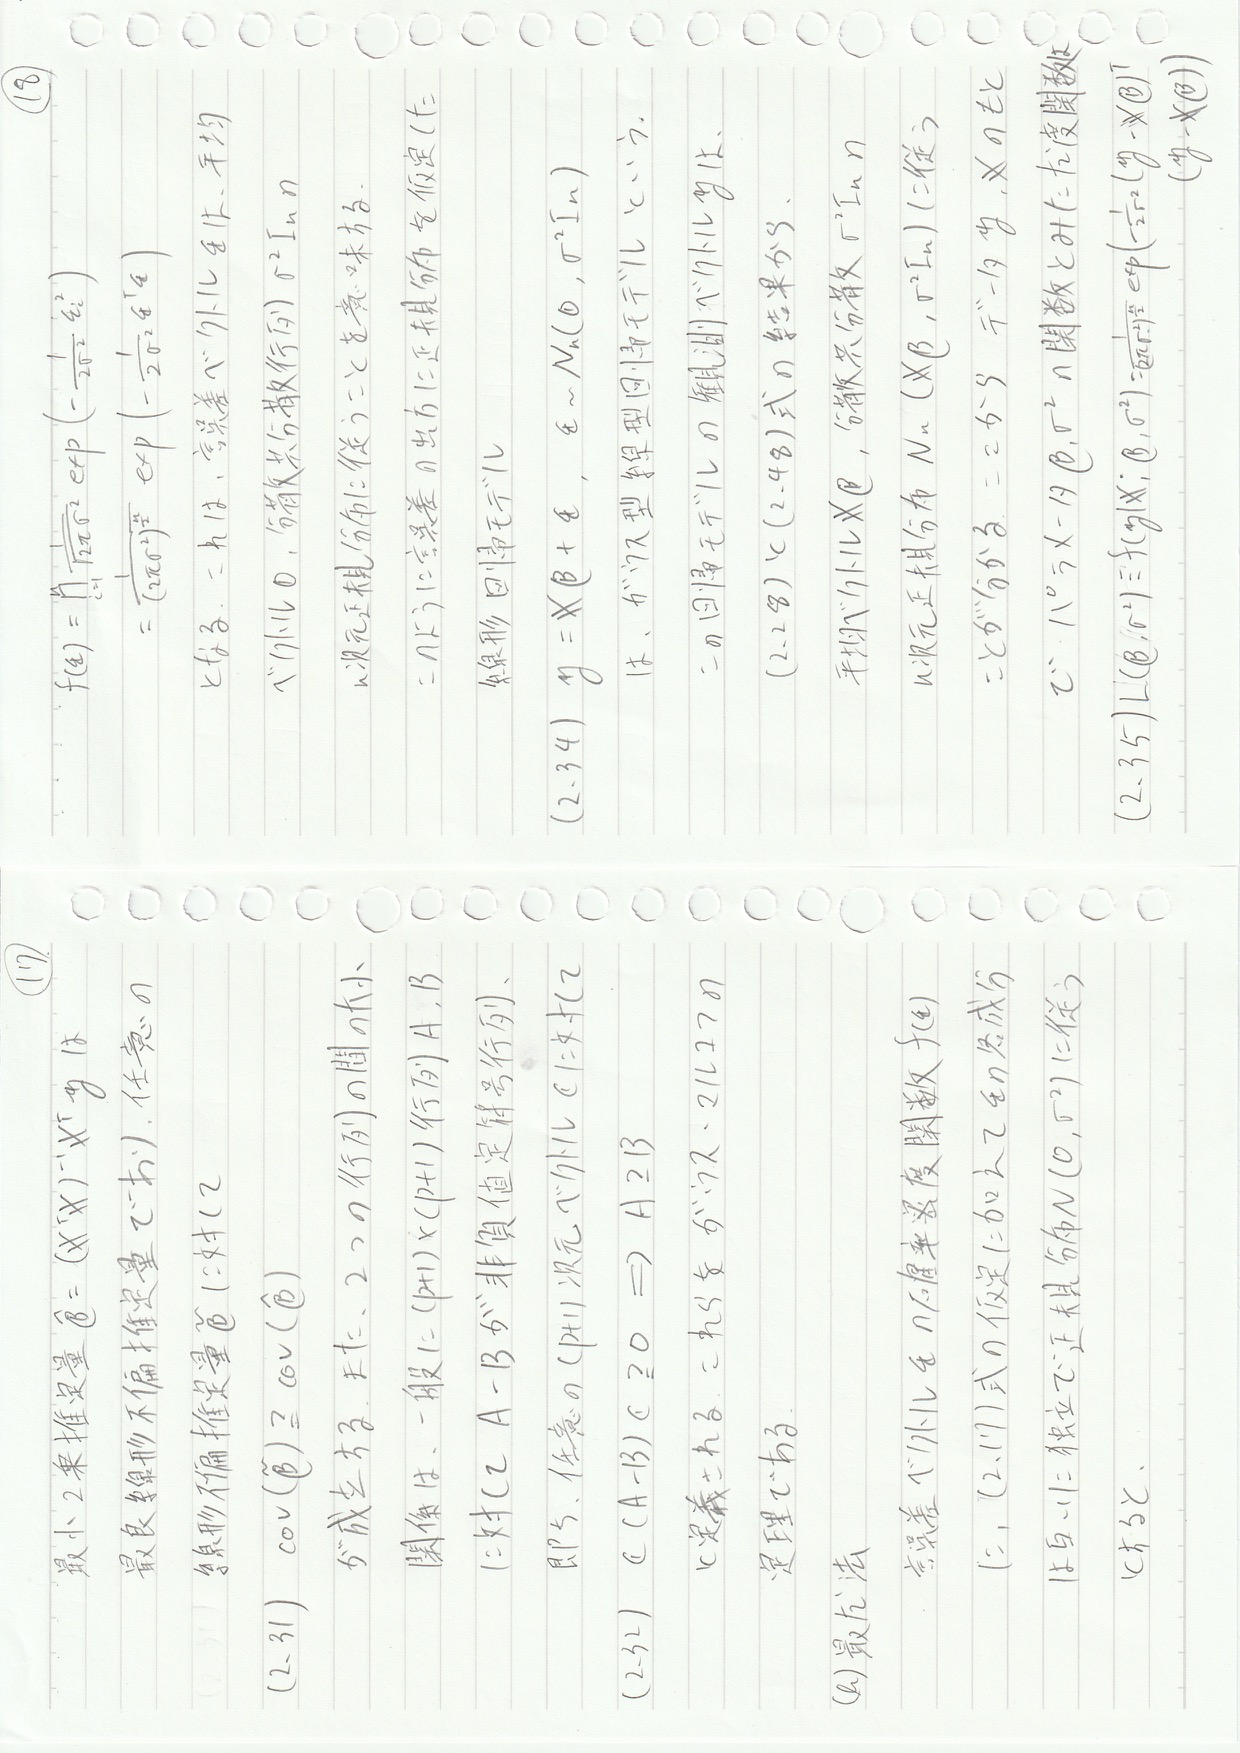 ⑰
最小2乗推定量 β̂ = (XᵀX)⁻¹Xᵀy は
最良線形不偏推定量であり、任意の
線形不偏推定量 β̃ に対して
(2.31) cov(β̃) ≧ cov(β̂)
が成立する。また、2つの行列の間の大小
関係は、一般に (p+1)×(p+1) 行列 A, B
に対して A-B が非負値定符号行列、
即ち、任意の (p+1) 次元ベクトル c に対して
(2.32) c(A-B)c ≧ 0 ⟹ A ≧ B
と定義される。これらをガウス・マルコフの
定理である。
(h) 最尤法
誤差ベクトル ε の確率密度関数 f(ε)
に、(2.17)式の仮定に加えて εの各成分
は互いに独立で正規分布N(0, σ²)に従う
とすると、
⑱
f(ε) = ∏ᵢ₌₁ⁿ 1/√(2πσ²) exp(-1/(2σ²) εᵢ²)
= 1/(2πσ²)^(n/2) exp(-1/(2σ²) εᵀε)
となる。これは、誤差ベクトル εは、平均
ベクトル 0, 分散共分散行列 σ²Iₙ の
n次元正規分布に従うことを意味する。
このように誤差の出方に正規分布を仮定した
線形回帰モデル
(2.34) y = Xβ + ε, ε ~ Nₙ(0, σ²Iₙ)
は、ガウス型線型回帰モデルという。
この回帰モデルの観測ベクトル yは、
(2.28)と(2.48)式の結果から、
平均ベクトル Xβ, 分散共分散 σ²Iₙ の
n次元正規分布 Nₙ(Xβ, σ²Iₙ)に従う
ことが分かる。ここから データ y, X のもと
で パラメータ β, σ² の関数とみた尤度関数は
(2.35) L(β, σ²) ≡ f(y|X; β, σ²) = 1/(2πσ²)^(n/2) exp(-1/(2σ²) (y-Xβ)ᵀ
(y-Xβ))